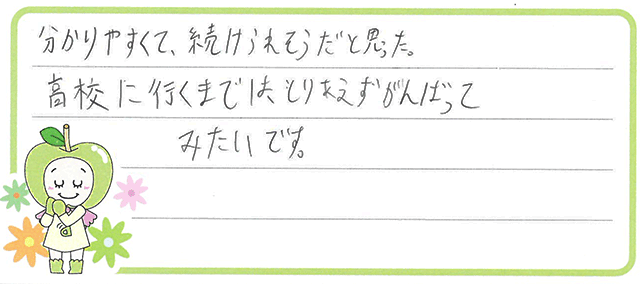 分かりやすくて、続けられそうだと思った。
高校に行くまでは、とりあえずがんばって
みたいです。